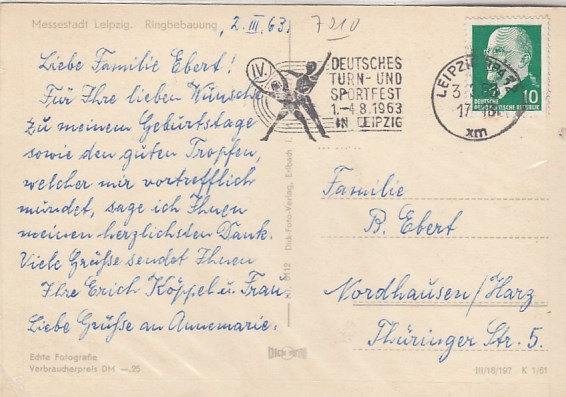 Messestadt Leipzig. Ringbebauung
,2. III. 63.
7210
Liebe Familie Ebert!
Für Ihre lieben Wünsche
zu meinem Geburtstage
sowie den guten Tropfen,
welcher mir vortrefflich
mundet, sage ich Ihnen
meinen herzlichsten Dank.
Viele Grüße sendet Ihnen
Ihre Erich Köppel u. Frau
Liebe Grüße an Annemarie.
Echte Fotografie
Verbraucherpreis DM —.35
IV.
DEUTSCHES
TURN- UND
SPORTFEST
1.-4.8.1963
IN LEIPZIG
LEIPZIG
17-18
xm
DEUTSCHE
DEMOKRATISCHE REPUBLIK
10
Dick-Foto-Verlag, Erlbach i.
Dick FOTO
Familie
B. Ebert
Nordhausen/Harz
Thüringer Str. 5.
III/18/197 K 1/61